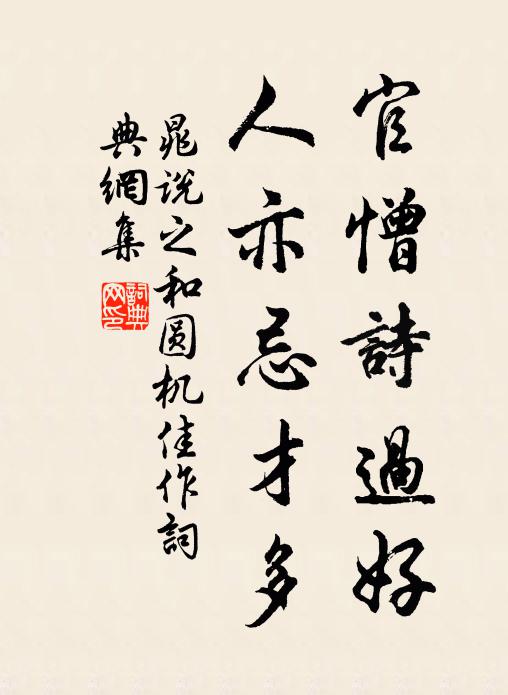 官憎詩過好
人亦忌才多
晁说之和圆机佳作詞
典網集
詞典
网印